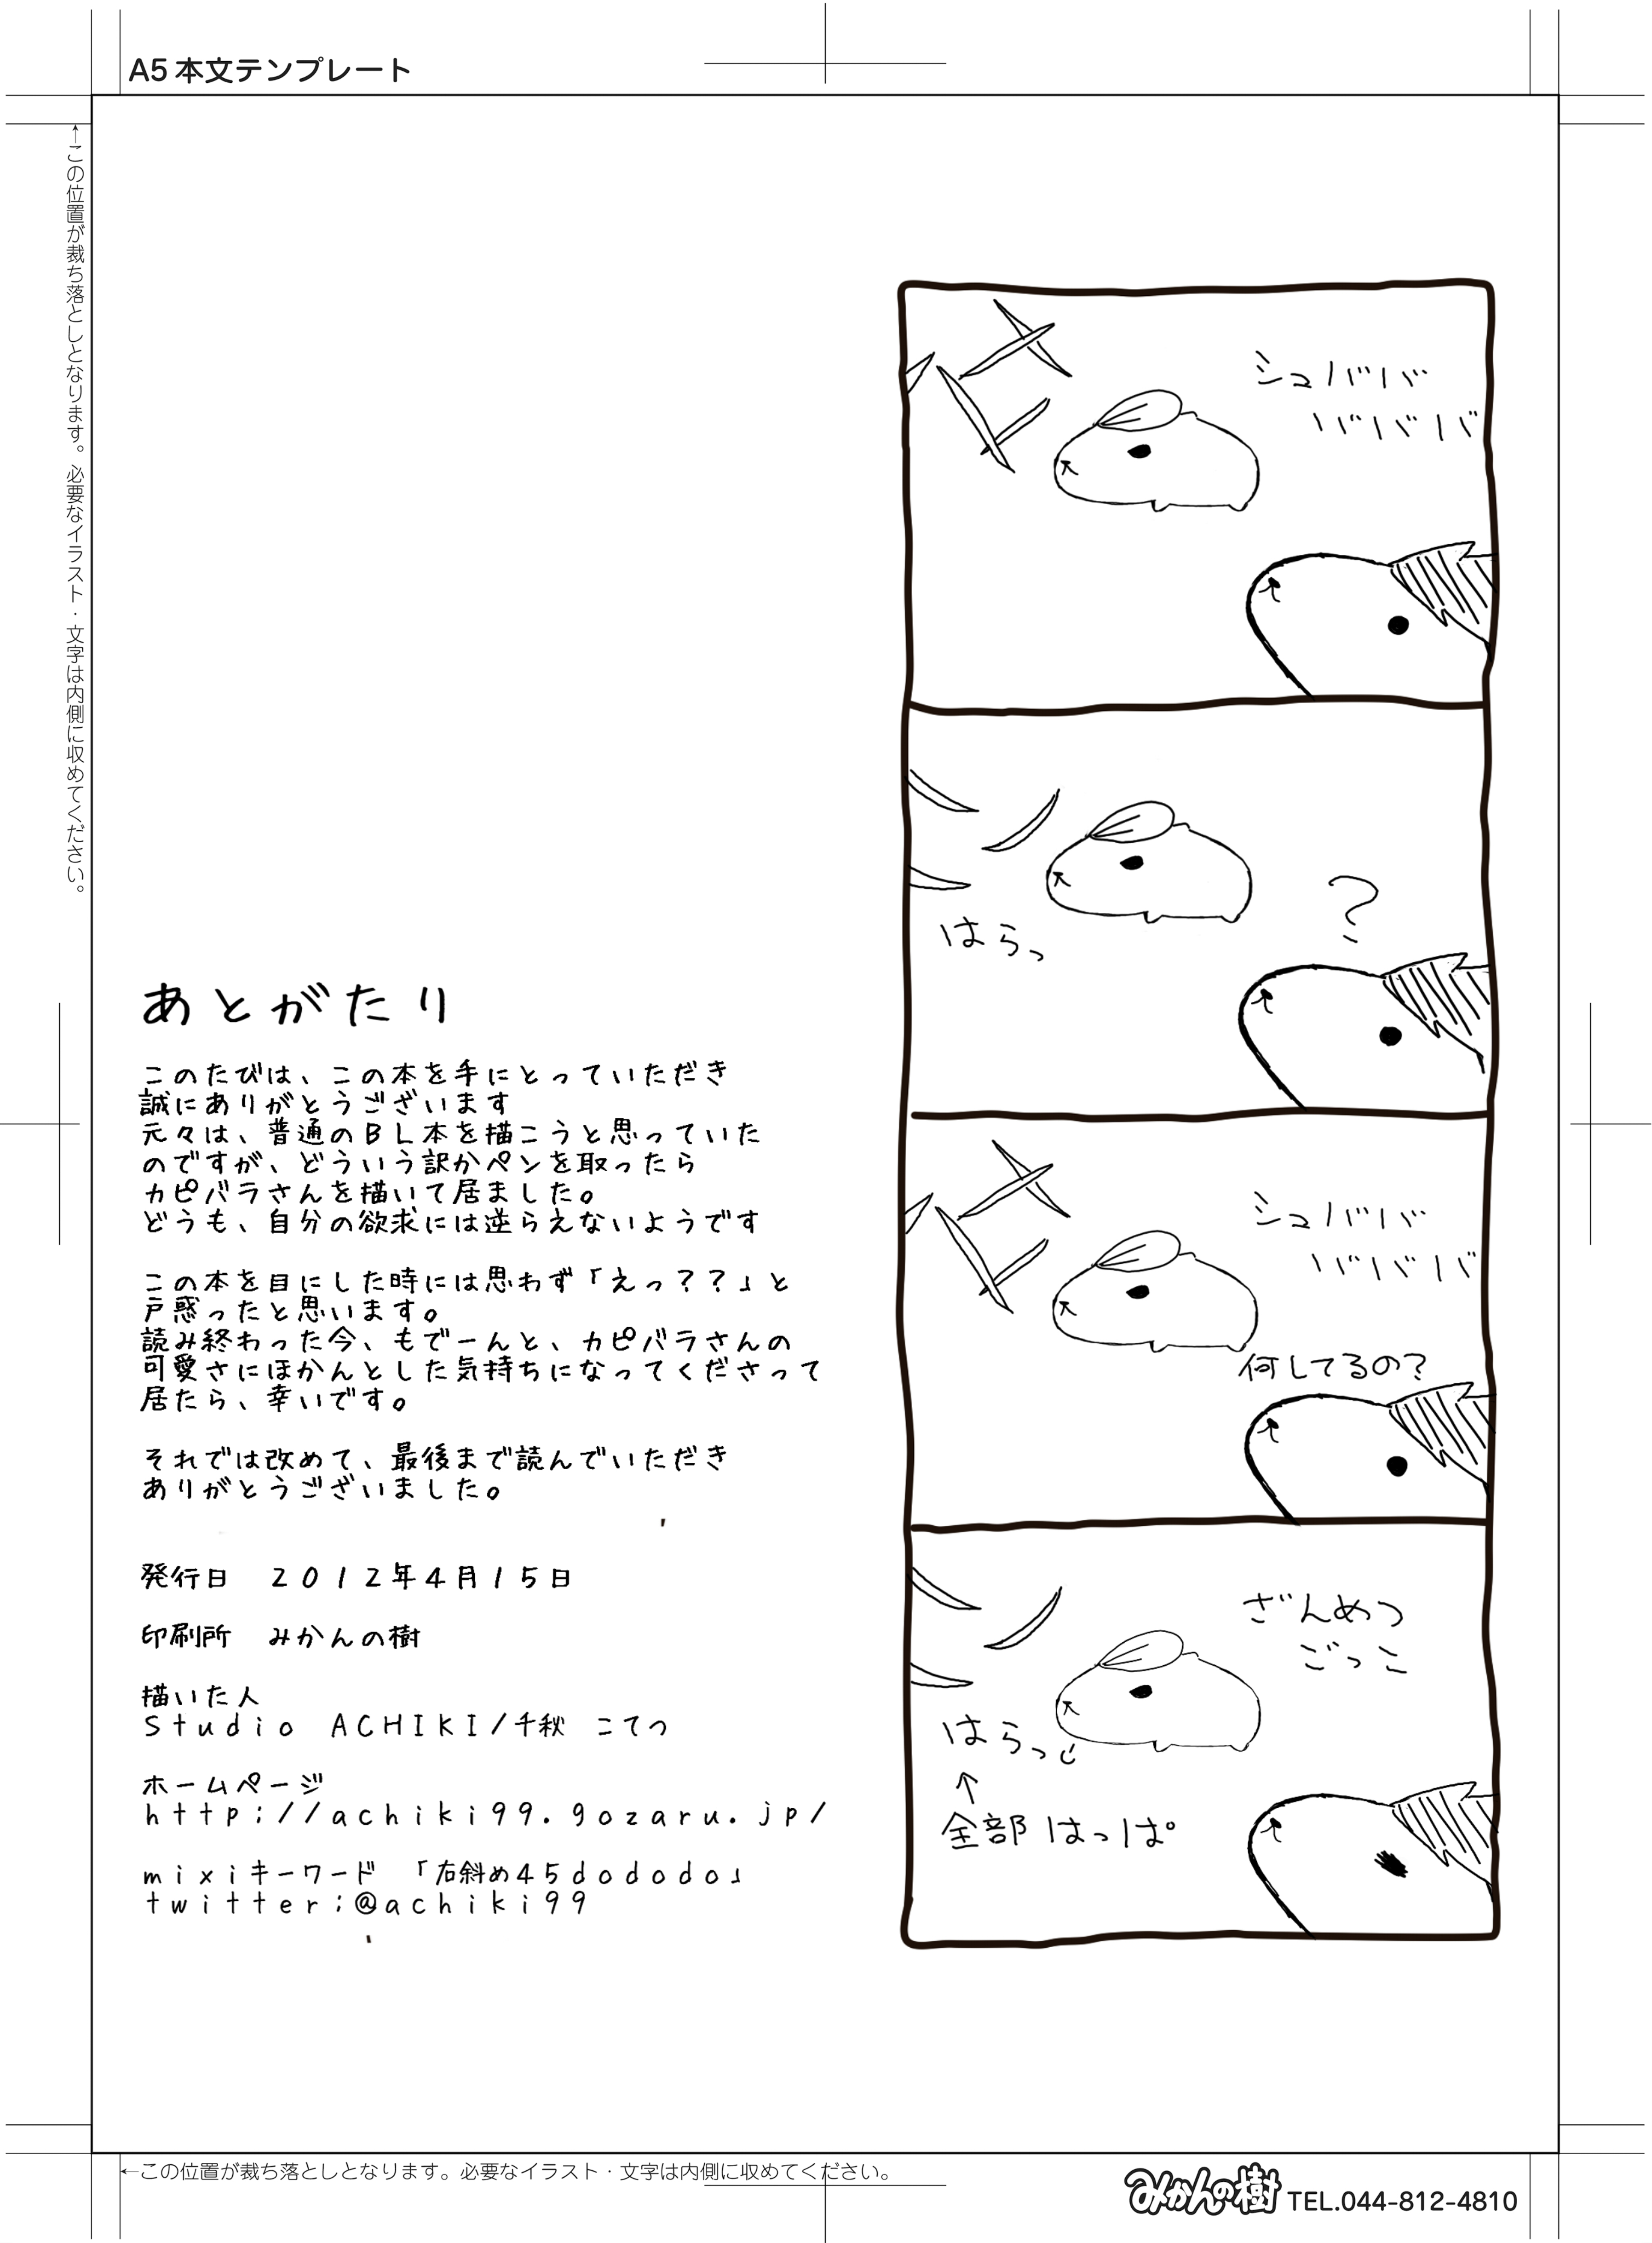 A5本文テンプレート
←この位置が裁ち落としとなります。必要なイラスト・文字は内側に収めてください。
シュババ
バババ
はらっ
？
シュババ
バババ
何してるの？
ざんめつ
ごっこ
はらっ
↑
全部はっぱ
あとがたり
このたびは、この本を手にとっていただき
誠にありがとうございます
元々は、普通のＢＬ本を描こうと思っていた
のですが、どういう訳かペンを取ったら
カピバラさんを描いて居ました。
どうも、自分の欲求には逆らえないようです
この本を目にした時には思わず「えっ？？」と
戸惑ったと思います。
読み終わった今、もでーんと、カピバラさんの
可愛さにほかんとした気持ちになってくださって
居たら、幸いです。
それでは改めて、最後まで読んでいただき
ありがとうございました。
発行日　２０１２年４月１５日
印刷所　みかんの樹
描いた人
Ｓｔｕｄｉｏ　ＡＣＨＩＫＩ／千秋　こてつ
ホームページ
ｈｔｔｐ：／／ａｃｈｉｋｉ９９．ｇｏｚａｒｕ．ｊｐ／
ｍｉｘｉキーワード　「右斜め４５ｄｏｄｏｄｏ」
ｔｗｉｔｔｅｒ：＠ａｃｈｉｋｉ９９
←この位置が裁ち落としとなります。必要なイラスト・文字は内側に収めてください。
みかんの樹 TEL.044-812-4810